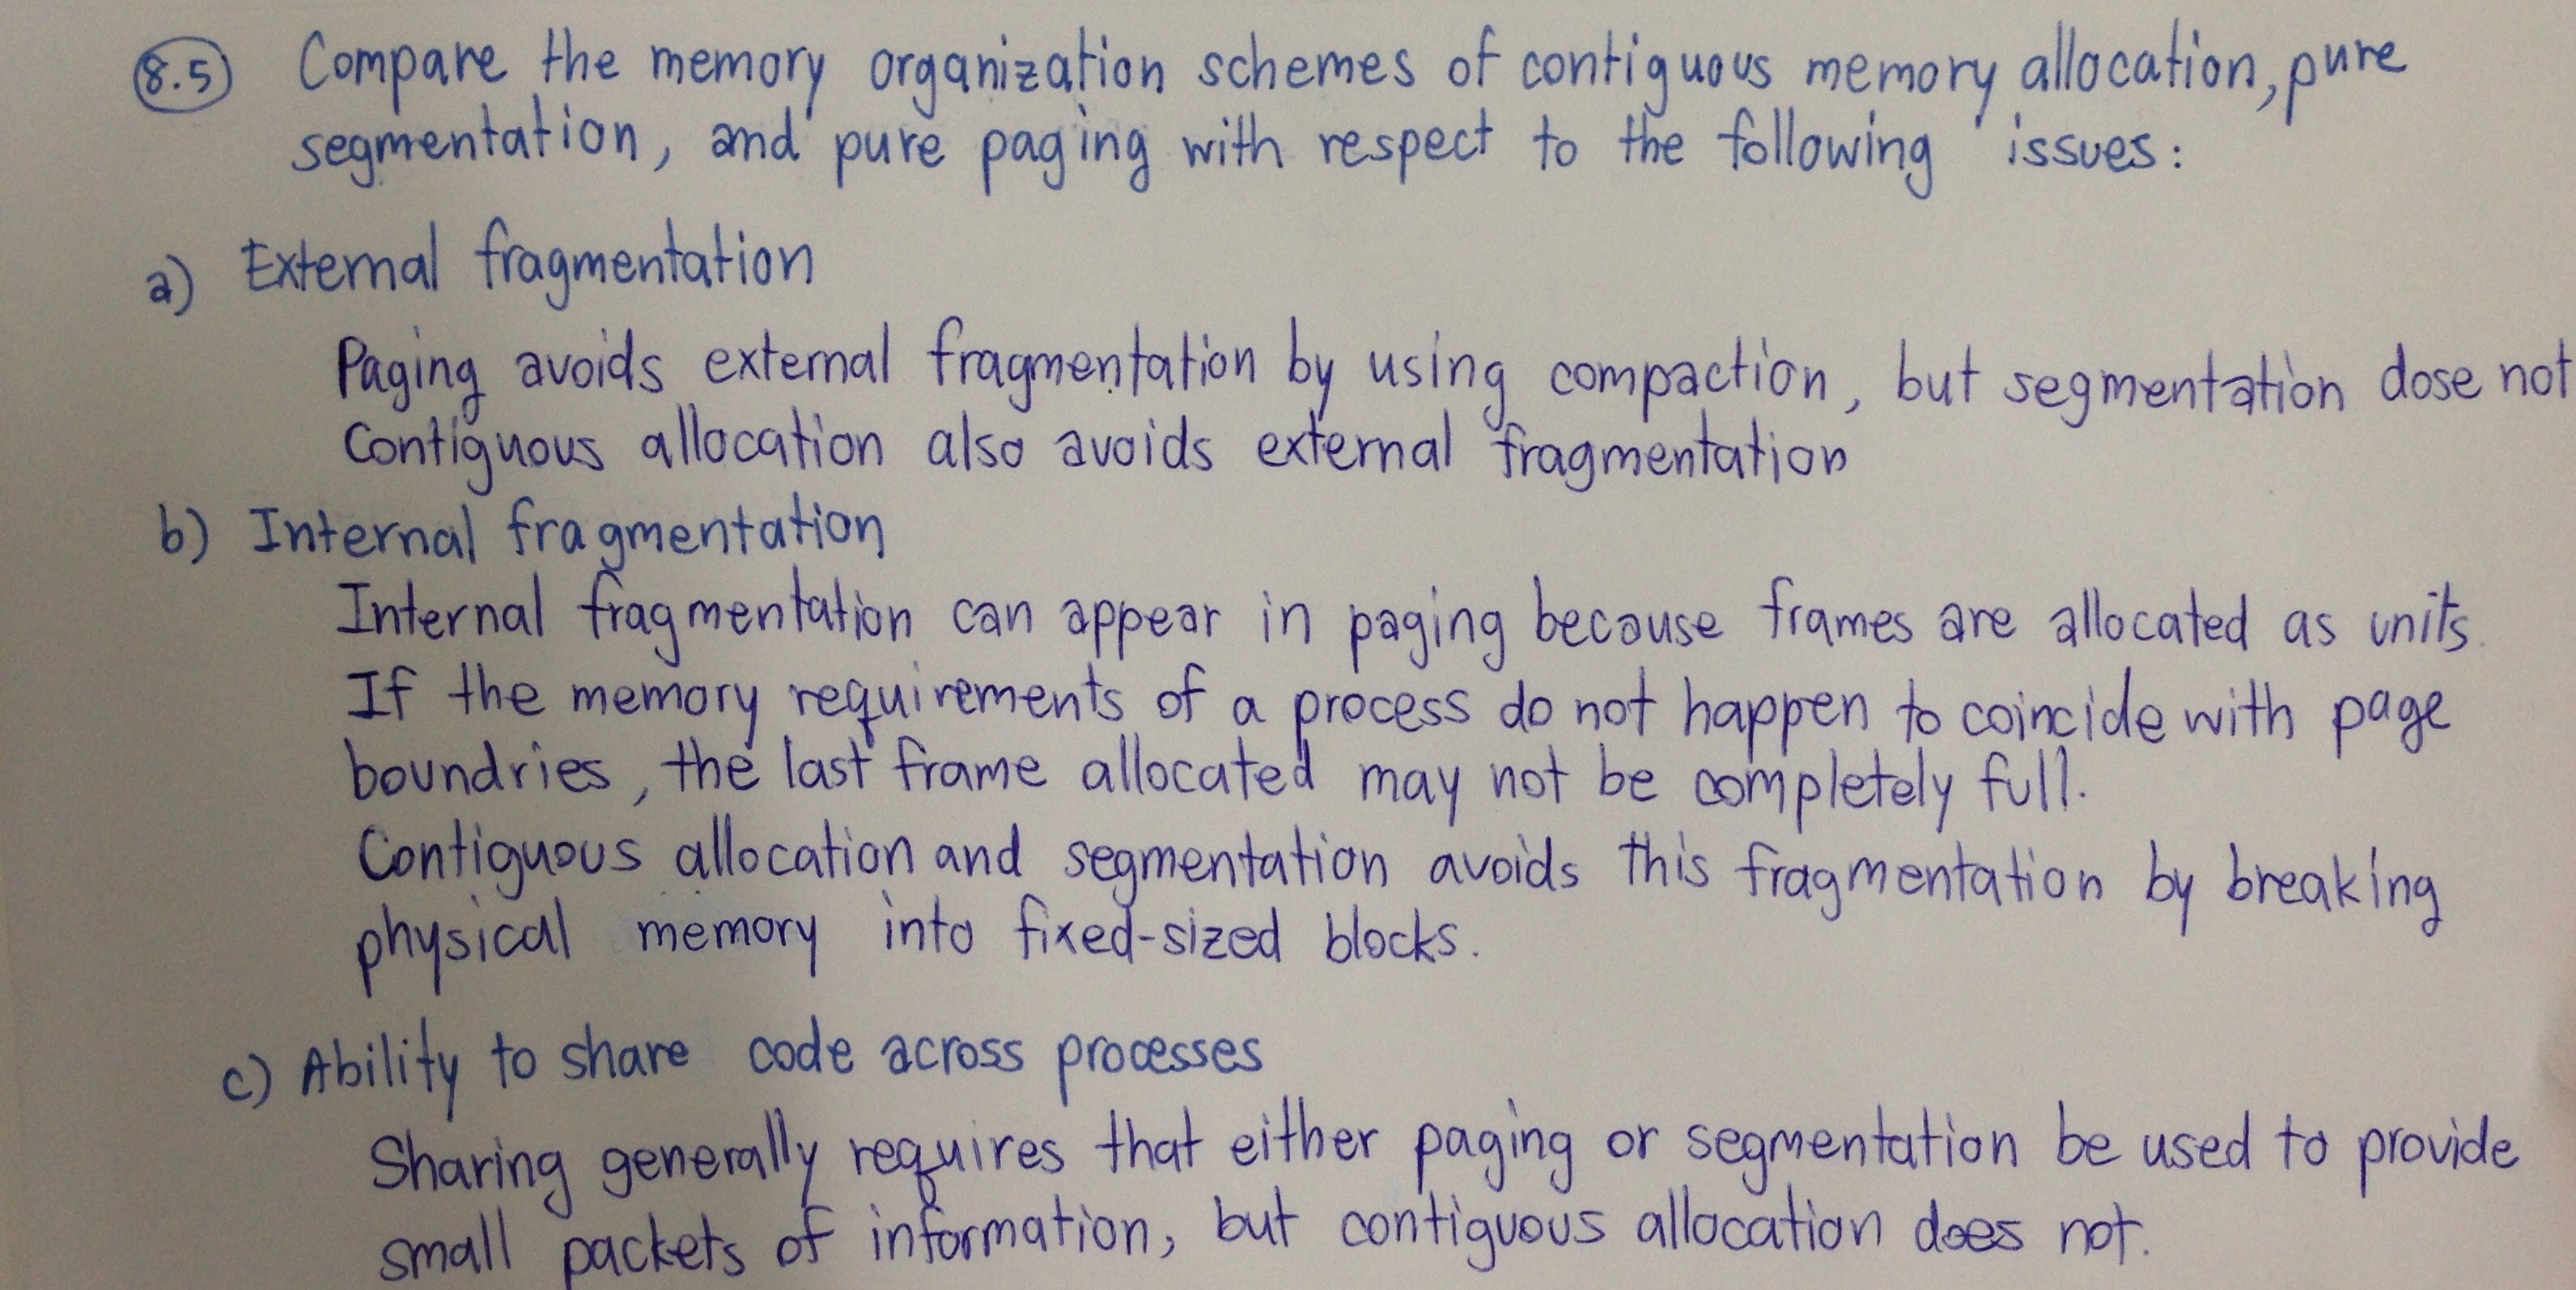 8.5 Compare the memory organization schemes of contiguous memory allocation, pure
segmentation, and pure paging with respect to the following issues:
a) External fragmentation
Paging avoids external fragmentation by using compaction, but segmentation dose not
Contiguous allocation also avoids external fragmentation
b) Internal fragmentation
Internal fragmentation can appear in paging because frames are allocated as units.
If the memory requirements of a process do not happen to coincide with page
boundries, the last frame allocated may not be completely full.
Contiguous allocation and segmentation avoids this fragmentation by breaking
physical memory into fixed-sized blocks.
c) Ability to share code across processes
Sharing generally requires that either paging or segmentation be used to provide
small packets of information, but contiguous allocation does not.